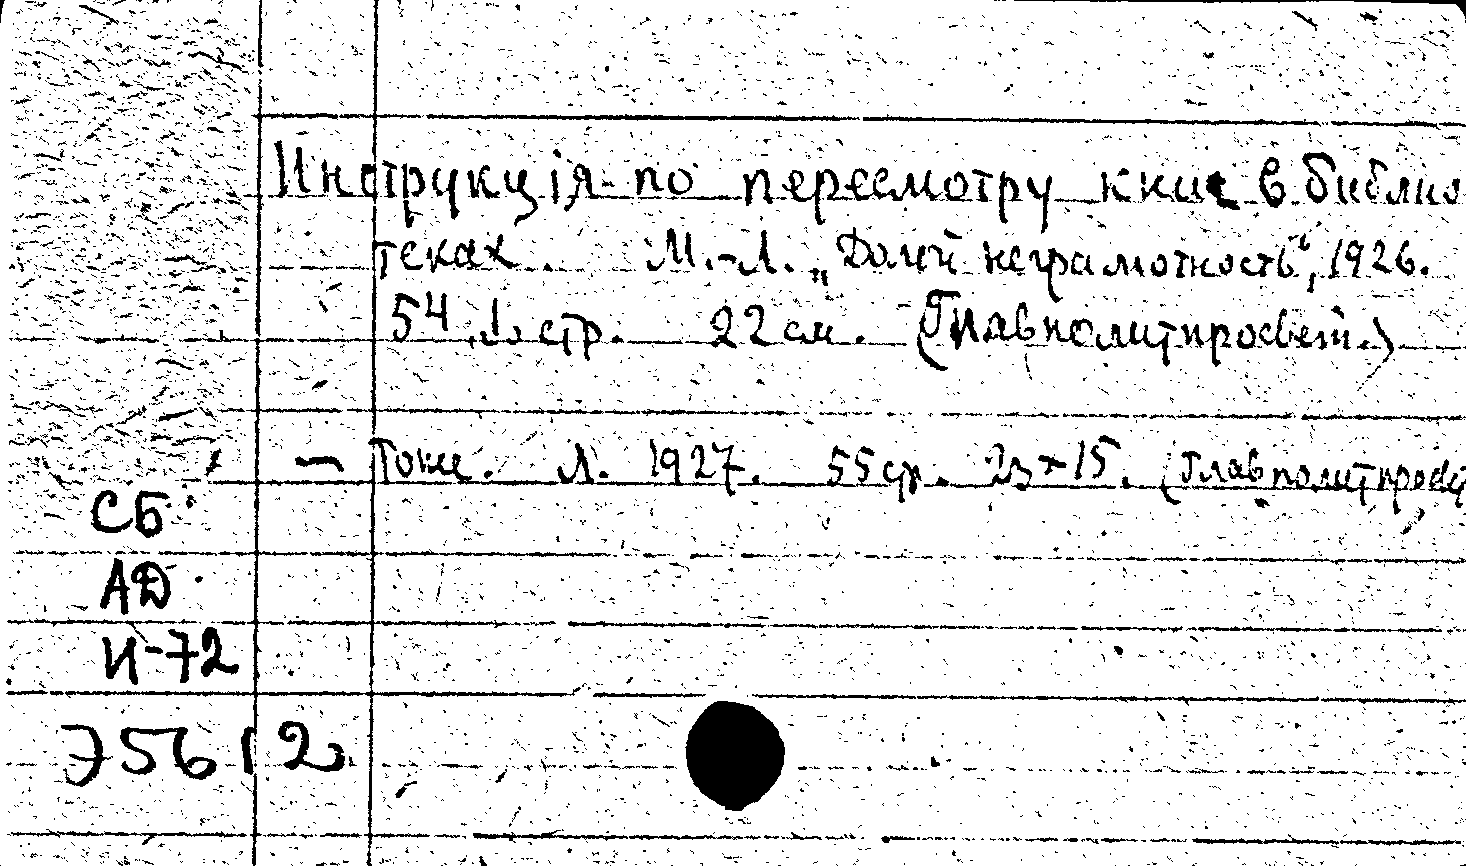 Инструкція по пересмотру книг в библио
теках. М.-Л. „Долой неграмотность“, 1926.
54, 1, стр. 22 см. (Главполитпросвет.)
— Тоже. Л. 1927. 55 стр. 23×15. (Главполитпросв
СБ
АД
И-72
Э5612